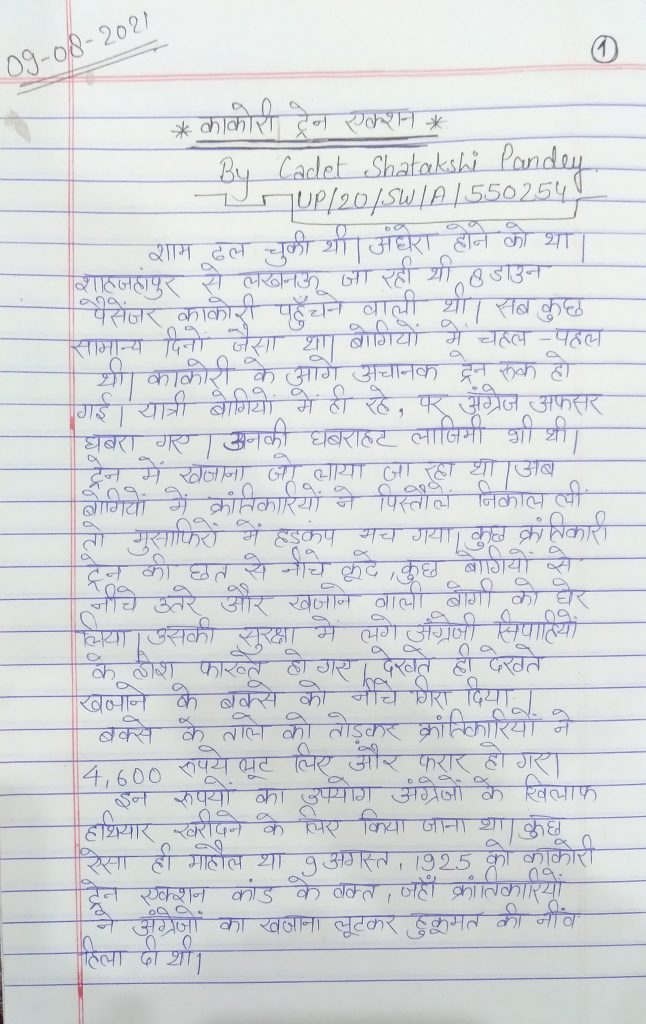 09-08-2021
1
* काकोरी ट्रेन एक्शन *
By Cadet Shatakshi Pandey
UP/20/SW/A/550254
शाम ढल चुकी थी। अंधेरा होने को था।
शाहजहांपुर से लखनऊ जा रही थी 8 डाउन
पैसेंजर काकोरी पहुँचने वाली थी। सब कुछ
सामान्य दिनों जैसा था। बोगियों में चहल-पहल
थी। काकोरी के आगे अचानक ट्रेन रुक हो
गई। यात्री बोगियों में ही रहे, पर अंग्रेज अफसर
घबरा गए। उनकी घबराहट लाजिमी भी थी।
ट्रेन में खजाना जो लाया जा रहा था। अब
बोगियों में क्रांतिकारियों ने पिस्तौलें निकाल ली
तो मुसाफिरों में हड़कंप मच गया। कुछ क्रांतिकारी
ट्रेन की छत से नीचे कूदे, कुछ बोगियों से
नीचे उतरे और खजाने वाली बोगी को घेर
लिया। उसकी सुरक्षा में लगे अंग्रेजी सिपाहियों
के होश फाख्ते हो गए। देखते ही देखते
खजाने के बक्से को नीचे गिरा दिया।
बक्से के ताले को तोड़कर क्रांतिकारियों ने
4,600 रुपये लूट लिए और फरार हो गए।
इन रुपयों का उपयोग अंग्रेजों के खिलाफ
हथियार खरीदने के लिए किया जाना था। कुछ
ऐसा ही माहौल था 9 अगस्त, 1925 को काकोरी
ट्रेन एक्शन कांड के वक्त, जहाँ क्रांतिकारियों
ने अंग्रेजों का खजाना लूटकर हुकूमत की नींव
हिला दी थी।